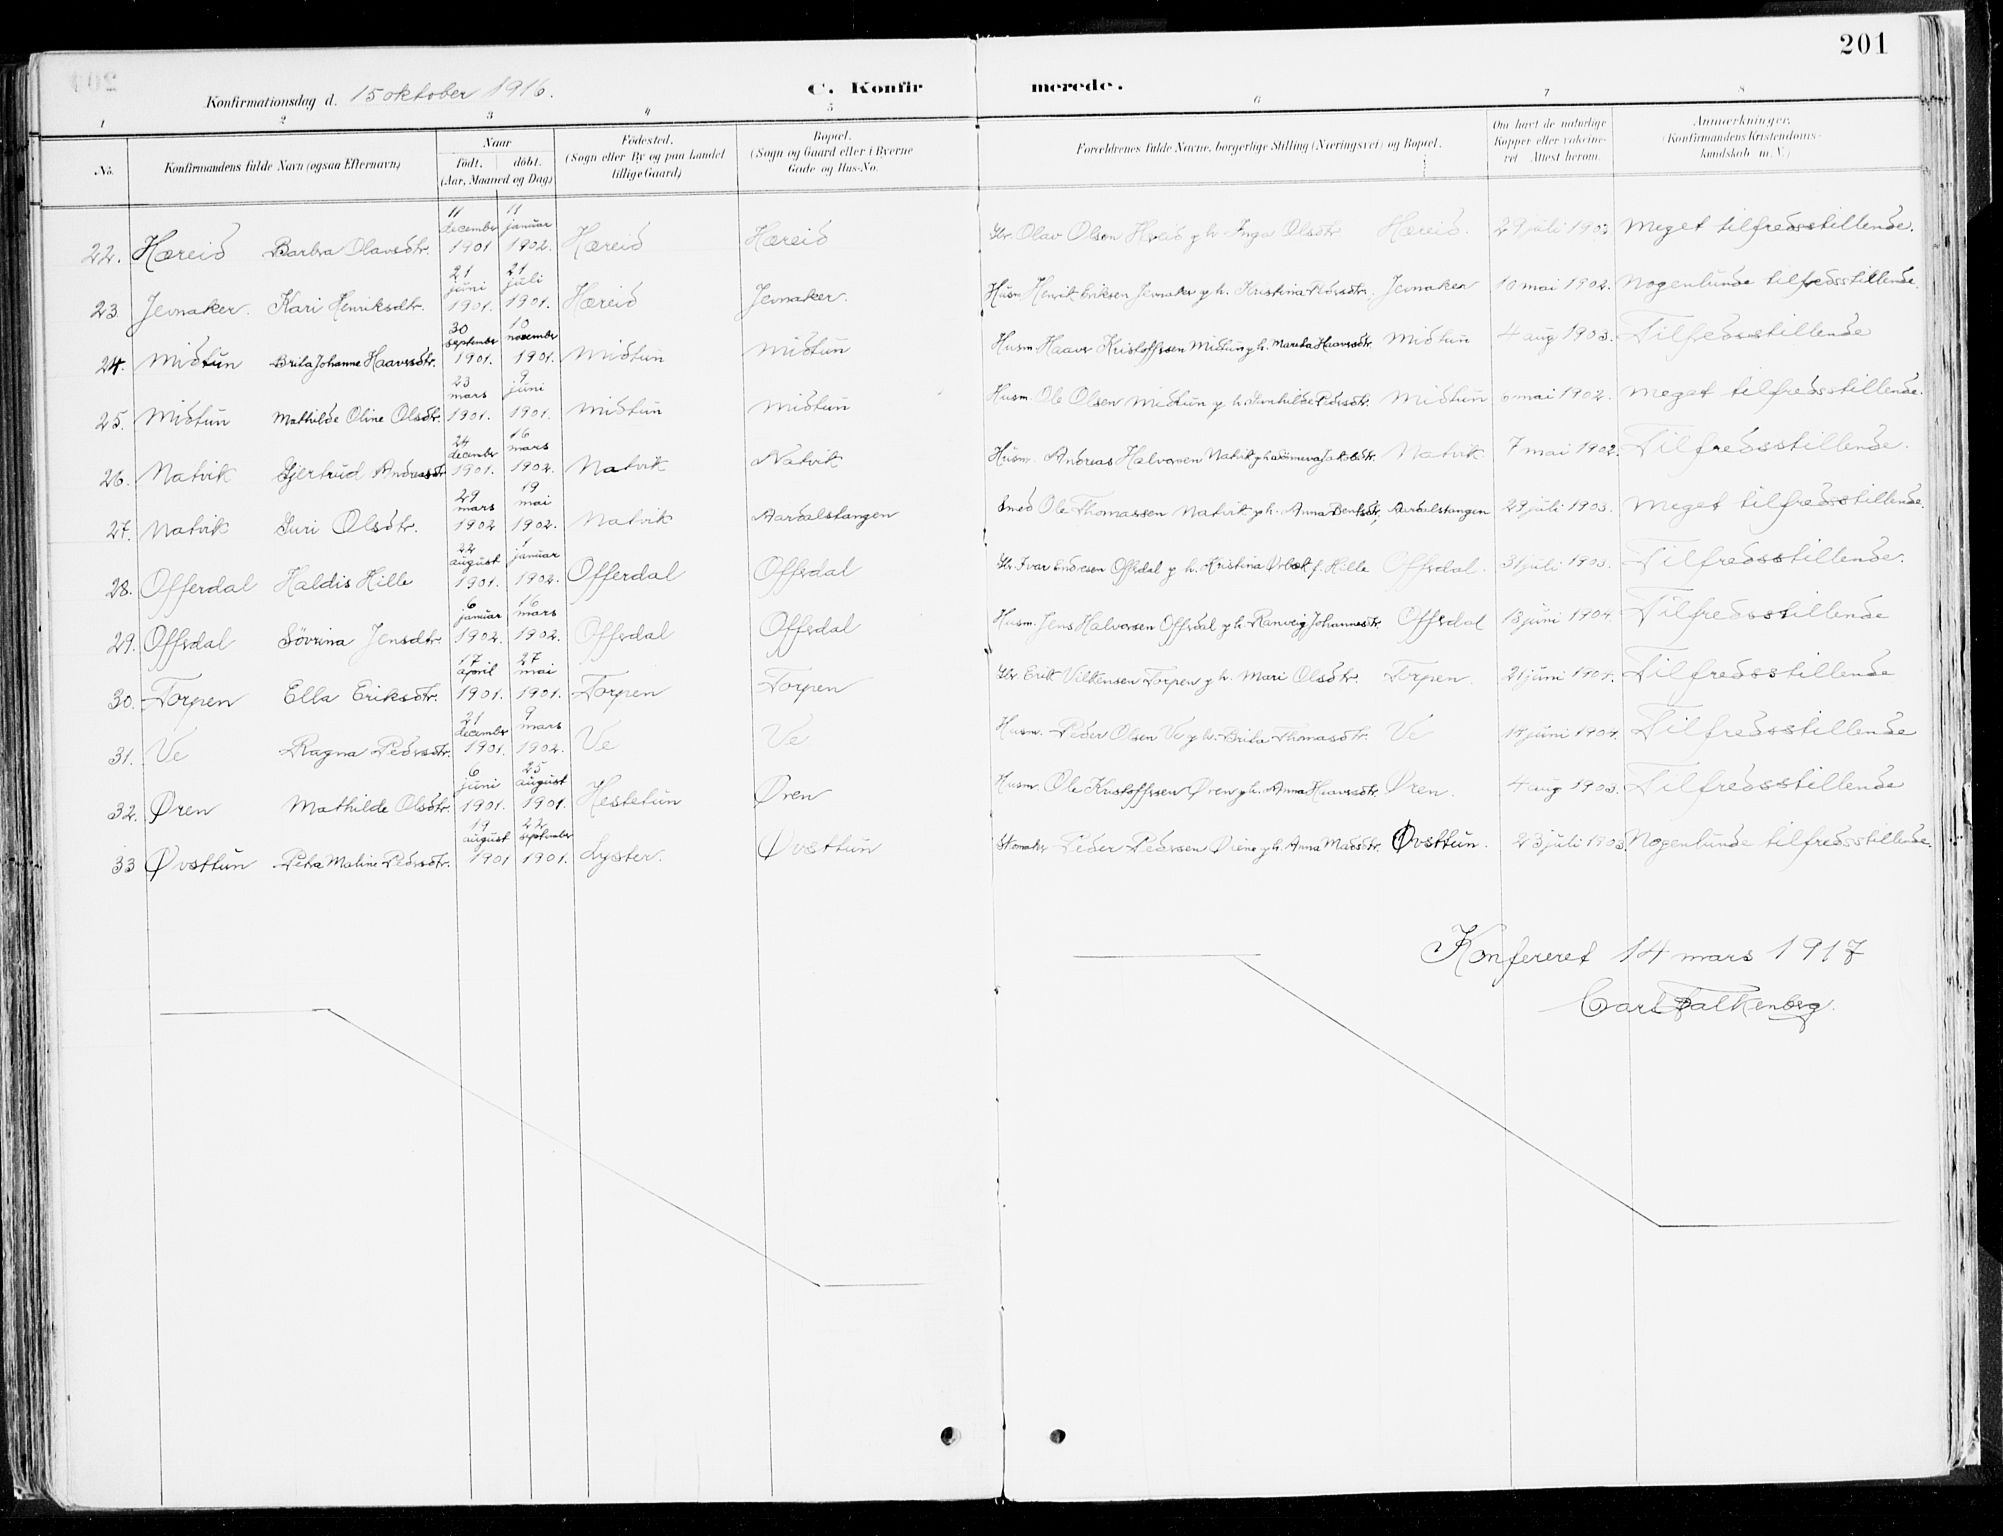 201
Konfirmationsdag d. 15 oktober 1916. C. Konfirmerede.
1 2 3 4 5 6 7 8
No. Konfirmandens fulde Navn (ogsaa Efternavn) Naar födt. döbt. (Aar, Maaned og Dag) Födested. (Sogn eller By og paa Landet tillige Gaard) Bopæl. (Sogn og Gaard eller i Byerne Gade og Hus-No. Forældrenes fulde Navne, borgerlige Stilling (Næringsvei) og Bopæl. Om havt de naturlige Kopper eller vakcineret Attest herom. Anmærkninger. (Konfirmandens Kristendomskundskab m. V.)
22. Hæreid Barbra Olavsdtr. 11 december 1901 11 januar 1902. Hæreid Hæreid Gbr. Olav Olsen Hæreid g h. Inga Olsdtr Hæreid. 29 juli 190 Meget tilfredsstillende.
23 Jevnaker. Kari Henriksdtr. 21 juni 1901. 21 juli 1901. Hæreid Jevnaker. Husm Henrik Eriksen Jevnaker g h. Kristina Pedersdtr. Jevnaker 10 mai 1902. Nogenlunde tilfredsstillende.
24. Midtun Brita Johanne Haavrsdtr. 30 september 1901. 10 november 1901. Midtun Midtun Husm. Haavr Kristoffersen Midtun g h. Mareta Haavrsdtr. Midtun 4 aug 1903. Tilfredsstillende
25. Midtun Mathilde Oline Olsdtr. 23 mars 1901. 9 juni 1901. Midtun Midtun Husm. Ole Olsen Midtun g h. Pedersdtr. Midtun 6 mai 1902. Meget tilfredsstillende.
26. Natvik Gjertrud Andreasdtr 24 december 1901. 16 mars 1902. Natvik Natvik Husm. Andreas Halvorsen Natvik g h. Jakobsdtr. Natvik 7 mai 1902. Tilfredsstillende.
27. Natvik Guri Olsdtr. 29 mars 1902 19 mai 1902. Natvik Aardalstangen Smed Ole Thomassen Natvik g h. Anna Bentsdtr, Aardalstangen 29 juli 1903. Meget tilfredsstillende.
28. Offerdal Haldis Hille 22 august 1901. 1 januar 1902. Offerdal Offerdal Gbr. Ivar Endresen Offerdal g h. Kristina f. Hille Offerdal. 31 juli 1903. Tilfredsstillende.
29. Offerdal Sövrina Jensdtr. 6 januar 1902. 16 mars 1902. Offerdal Offerdal Husm. Jens Halvorsen Offerdal g h. Ranveig Johannesdtr. Offerdal 13 juni 1904. Tilfredsstillende
30. Torpen Ella Eriksdtr. 17 april 1901. 27 mai 1901. Torpen Torpen Gbr. Erik Vilhemsen Torpen g h. Mari Olsdtr. Torpen. 21 juni 1904. Tilfredsstillende
31. Ve Ragna Pedersdtr. 21 december 1901. 9 mars 1902. Ve Ve Husm. Peder Olsen Ve g h. Brita Thomasdtr. Ve 14 juni 1904. Tilfredsstillende
32. Øren Mathilde Olsdtr. 6 juni 1901. 25 august 1901. Hestetun Øren Husm. Ole Kristoffersen Øren g h. Anna Haavrsdtr. Øren. 4 aug 1903. Tilfredsstillende
33 Øvsttun Petra Maline Pedersdtr. 19 august 1901 22 september 1901. Lyster. Øvsttun Skomaker Peder Pedersen Øiene g h. Anna Madsdtr. Øvsttun. 23 juli 1903. Nogenlunde tilfredsstillende.
Konfereret 14 mars 1917
Carl Falkenberg.